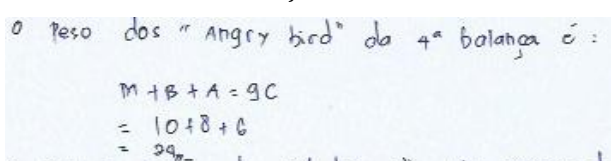 O Peso dos "Angry bird" da 4ª balança é:
M + B + A = 9C
= 10 + 8 + 6
= 24